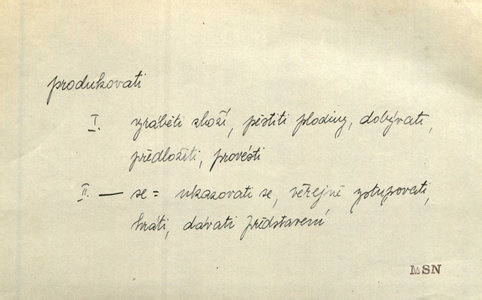 produkovati
I. vyráběti zboží, pěstiti plodiny, dobývati,
předložiti, provésti
II. — se = ukazovati se, veřejně vystupovati,
hráti, dávati představení
MSN